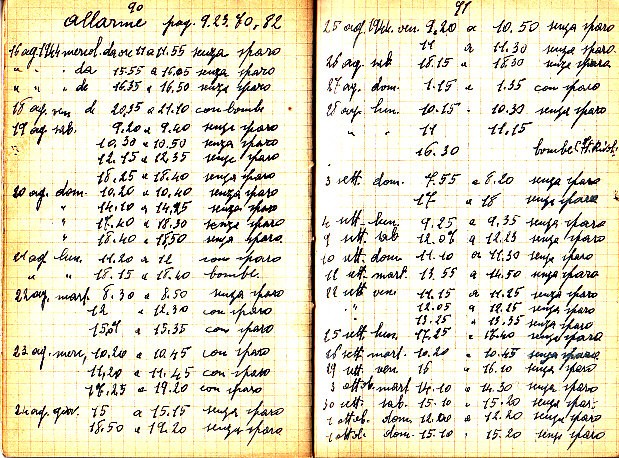 90
allarme pag. 9.23.70, 82
16 ag. 1944 mercol. da ore 11 a 11.55 senza sparo
" " da 15.55 a 16.05 senza sparo
" " da 16.35 a 16.50 senza sparo
18 ag. ven da 20,35 a 21.10 con bombe
19 ag. sab. 9.20 a 9.40 senza sparo
10.30 a 10.50 senza sparo
12.15 a 12.35 senza sparo
18.25 a 18.40 senza sparo
20 ag. dom. 10.20 a 10.40 senza sparo
" 14.10 a 14.25 senza sparo
" 17.40 a 18.30 senza sparo
" 18.40 a 18.50 senza sparo
21 ag. lun. 11.20 a 12 con sparo
" " 18.15 a 18.40 bombe
22 ag. mart. 8.30 a 8.50 senza sparo
12 a 12.30 con sparo
a 15.35 con sparo
23 ag. merc. 10.20 a 10.45 con sparo
11,20 a 11.45 con sparo
a 19.20 con sparo
24 ag. giov. 15 a 15.15 senza sparo
18.50 a 19.20 senza sparo
91
25 ag. 1944. ven. 9.20 a 10.50 senza sparo
11 a 11.30 senza sparo
26 ag. sab 18.15 a 18.30 senza sparo
27 ag. dom. 1.15 a 1.35 con sparo
28 ag. lun. 10.15 10.30 senza sparo
" " 11 11.15
16.30 bombe
3 sett. dom. 7.55 a 8.20 senza sparo
17 a 18 senza sparo
4 sett. lun. 9.25 a 9,35 senza sparo
9 sett. sab a 12.25 senza sparo
10 sett. dom. 11.10 a 11.30 senza sparo
12 sett. mart. 13.55 a 14.50 senza sparo
22 sett. ven. 11.15 a 11.25 senza sparo
12.05 a 12.25 senza sparo
13.25 a 13.35 senza sparo
25 sett. lun. 17.25 a 17.40 senza sparo
26 sett. mart. 10.20 a 10.45 senza sparo
29 sett. ven. 16 a 16.10 senza sparo
3 ottob. mart. 14.10 a 14.30 senza sparo
30 sett. sab. 15.10 a 15.20 senza sparo
1 ottob. dom. a 12.20 senza sparo
1 ottob. dom. 15.10 a 15.20 senza sparo